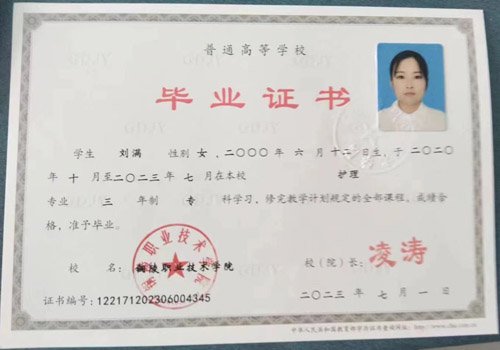 普通高等学校
毕业证书
学生 刘满 性别 女,二〇〇〇年 六 月 十二 日生,于二〇二〇
年 十 月至二〇二三年 七 月在本校 护理
专业 三 年制 专 科学习,修完教学计划规定的全部课程,成绩合
格,准予毕业。
铜陵职业技术学院
校 名:铜陵职业技术学院 校(院)长:凌涛
证书编号:122171202306004345 二〇二三年 七 月 一 日
中华人民共和国教育部学历证书查询网址:http://www.chsi.com.cn